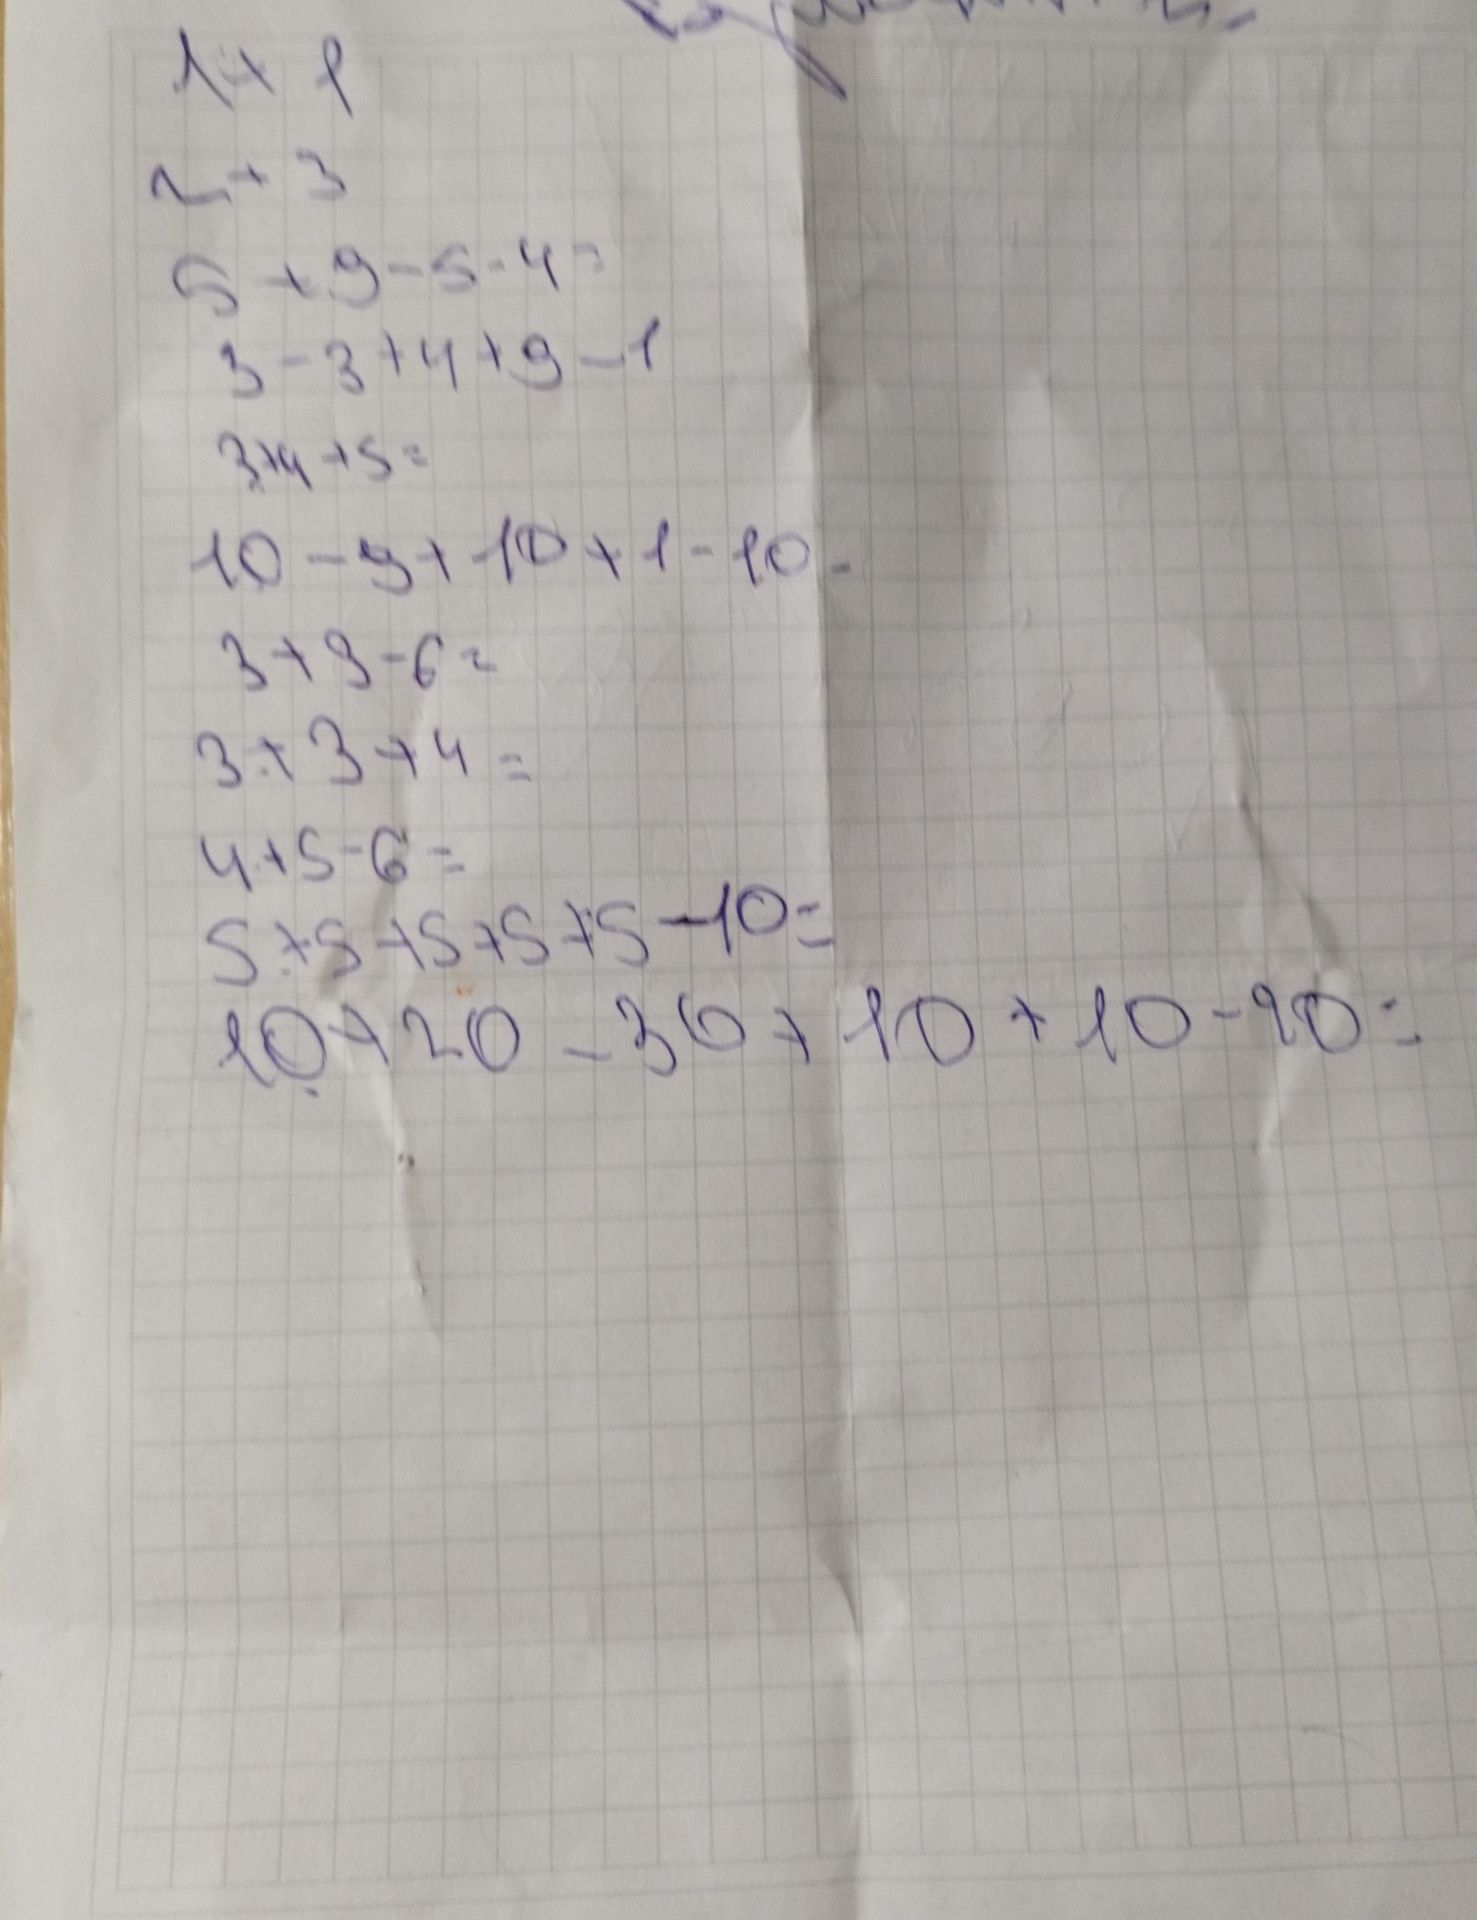 1+1
2+3
5+9-5-4=
3-3+4+9-1
3+4+5=
10-9+10+1-10=
3+9-6=
3+3+4=
4+5-6=
5+5+5+5+5-10=
10+20-30+10+10-20=